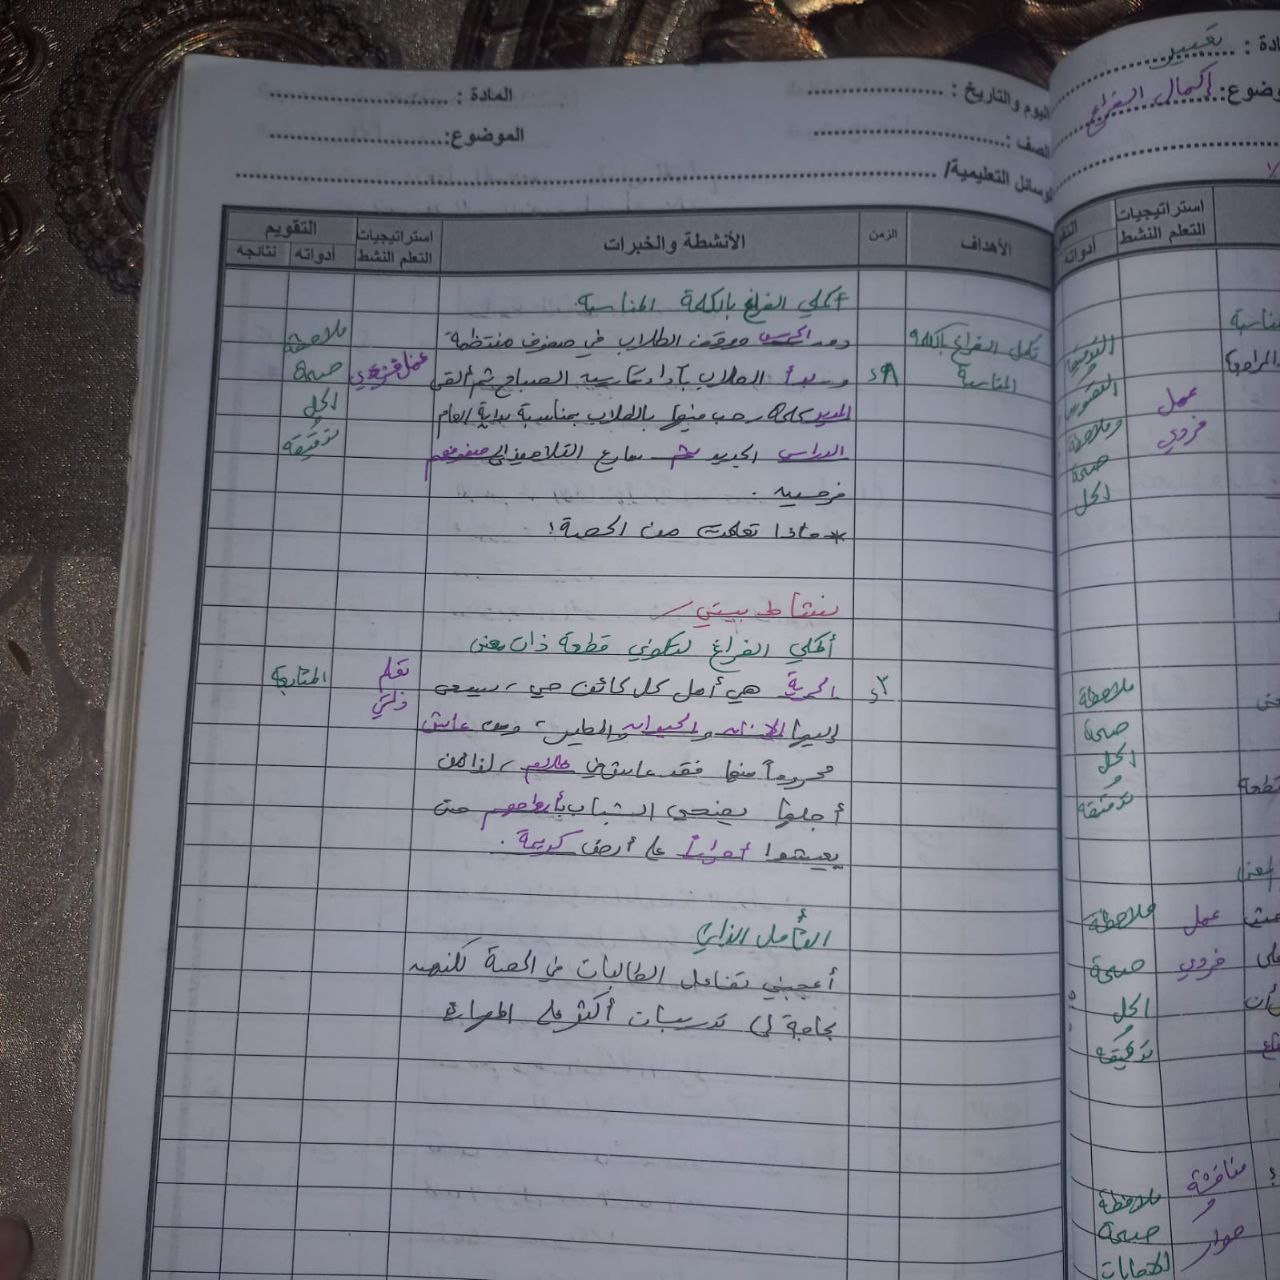 اليوم والتاريخ : ........................ المادة : ........................
الصف : ........................ الموضوع: ........................
الوسائل التعليمية/ ........................
الأهداف الزمن الأنشطة والخبرات استراتيجيات التعلم النشط التقويم
أدواته نتائجه
أكملي الفراغ بالكلمة المناسبة.
تكمل الفراغ بالكلمة
المناسبة
الجرس ووقف الطلاب في صفوف منتظمة
الطلاب بأداء الصباح ثم ألقى
المدير كلمة رحب فيها بالطلاب بمناسبة بداية العام
الدراسي الجديد ثم سارع التلاميذ إلى صفوفهم
فرحين .
*ماذا تعلمت من الحصة؟
عمل فردي
ملاحظة
صحة
الحل
وتدقيقه
نشاط بيتي/
أكملي الفراغ لتكوني قطعة ذات معنى
الحرية هي أمل كل كائن حي ، يسعى
إليها الإنسان والحيوان والطير ، ومن عاش
محروماً منها فقد عاش في ظلام ، لذا من
أجلها يضحي الشباب بأرواحهم حتى
يعيشوا أحراراً على أرض كريمة .
تعلم
ذاتي
المتابعة
التأمل الذاتي
أعجبني تفاعل الطالبات في الحصة
بحاجة إلى تدريبات أكثر على المهارة
تعبير
إكمال الفراغ
استراتيجيات التعلم النشط
أدواته
عمل
فردي
وملاحظة
صحة
الحل
ملاحظة
صحة
الحل
و
تدقيقه
عمل
فردي
ملاحظة
صحة
الحل
و
تدقيقه
مناقشة
و
حوار
ملاحظة
صحة
الإجابات